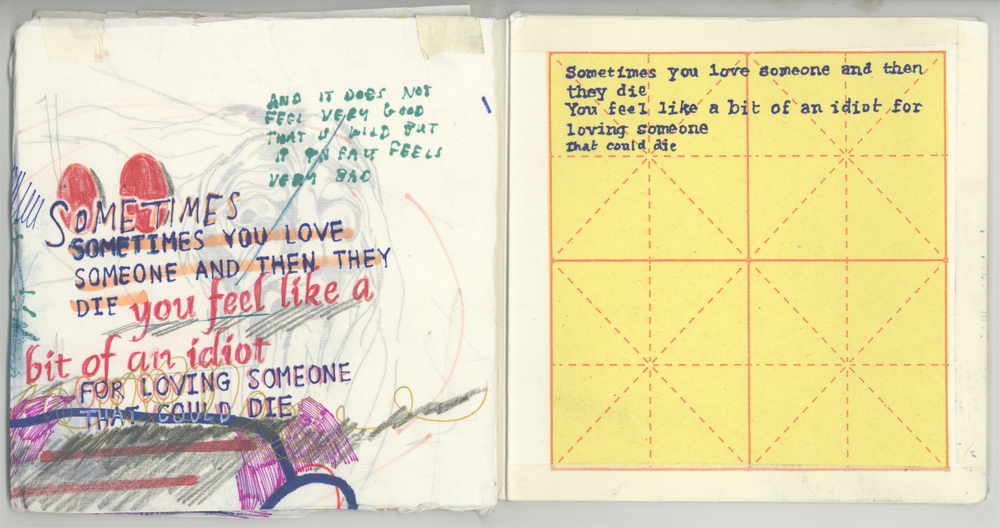 AND IT DOES NOT
FEEL VERY GOOD
THAT IS WILD BUT
IT IN FACT FEELS
VERY BAD
SOMETIMES
SOMETIMES YOU LOVE
SOMEONE AND THEN THEY
DIE you feel like a
bit of an idiot
FOR LOVING SOMEONE
THAT COULD DIE
Sometimes you love someone and then
they die
You feel like a bit of an idiot for
loving someone
that could die